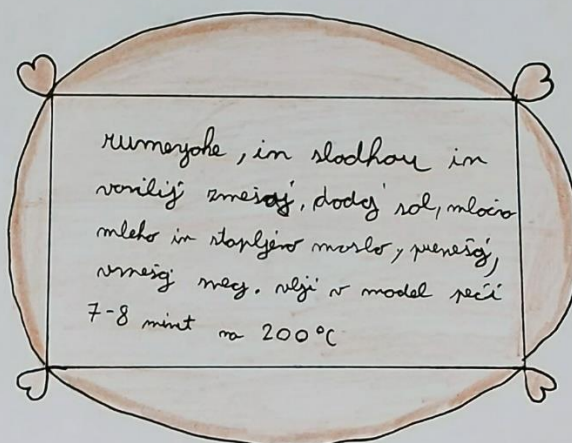 rumenjake, in sladkor in
vanilij zmešaj, dodaj sol, mlačno
mleko in stopljeno maslo, premešaj,
vmešaj sneg. vlij v model peči
7-8 minut na 200°C